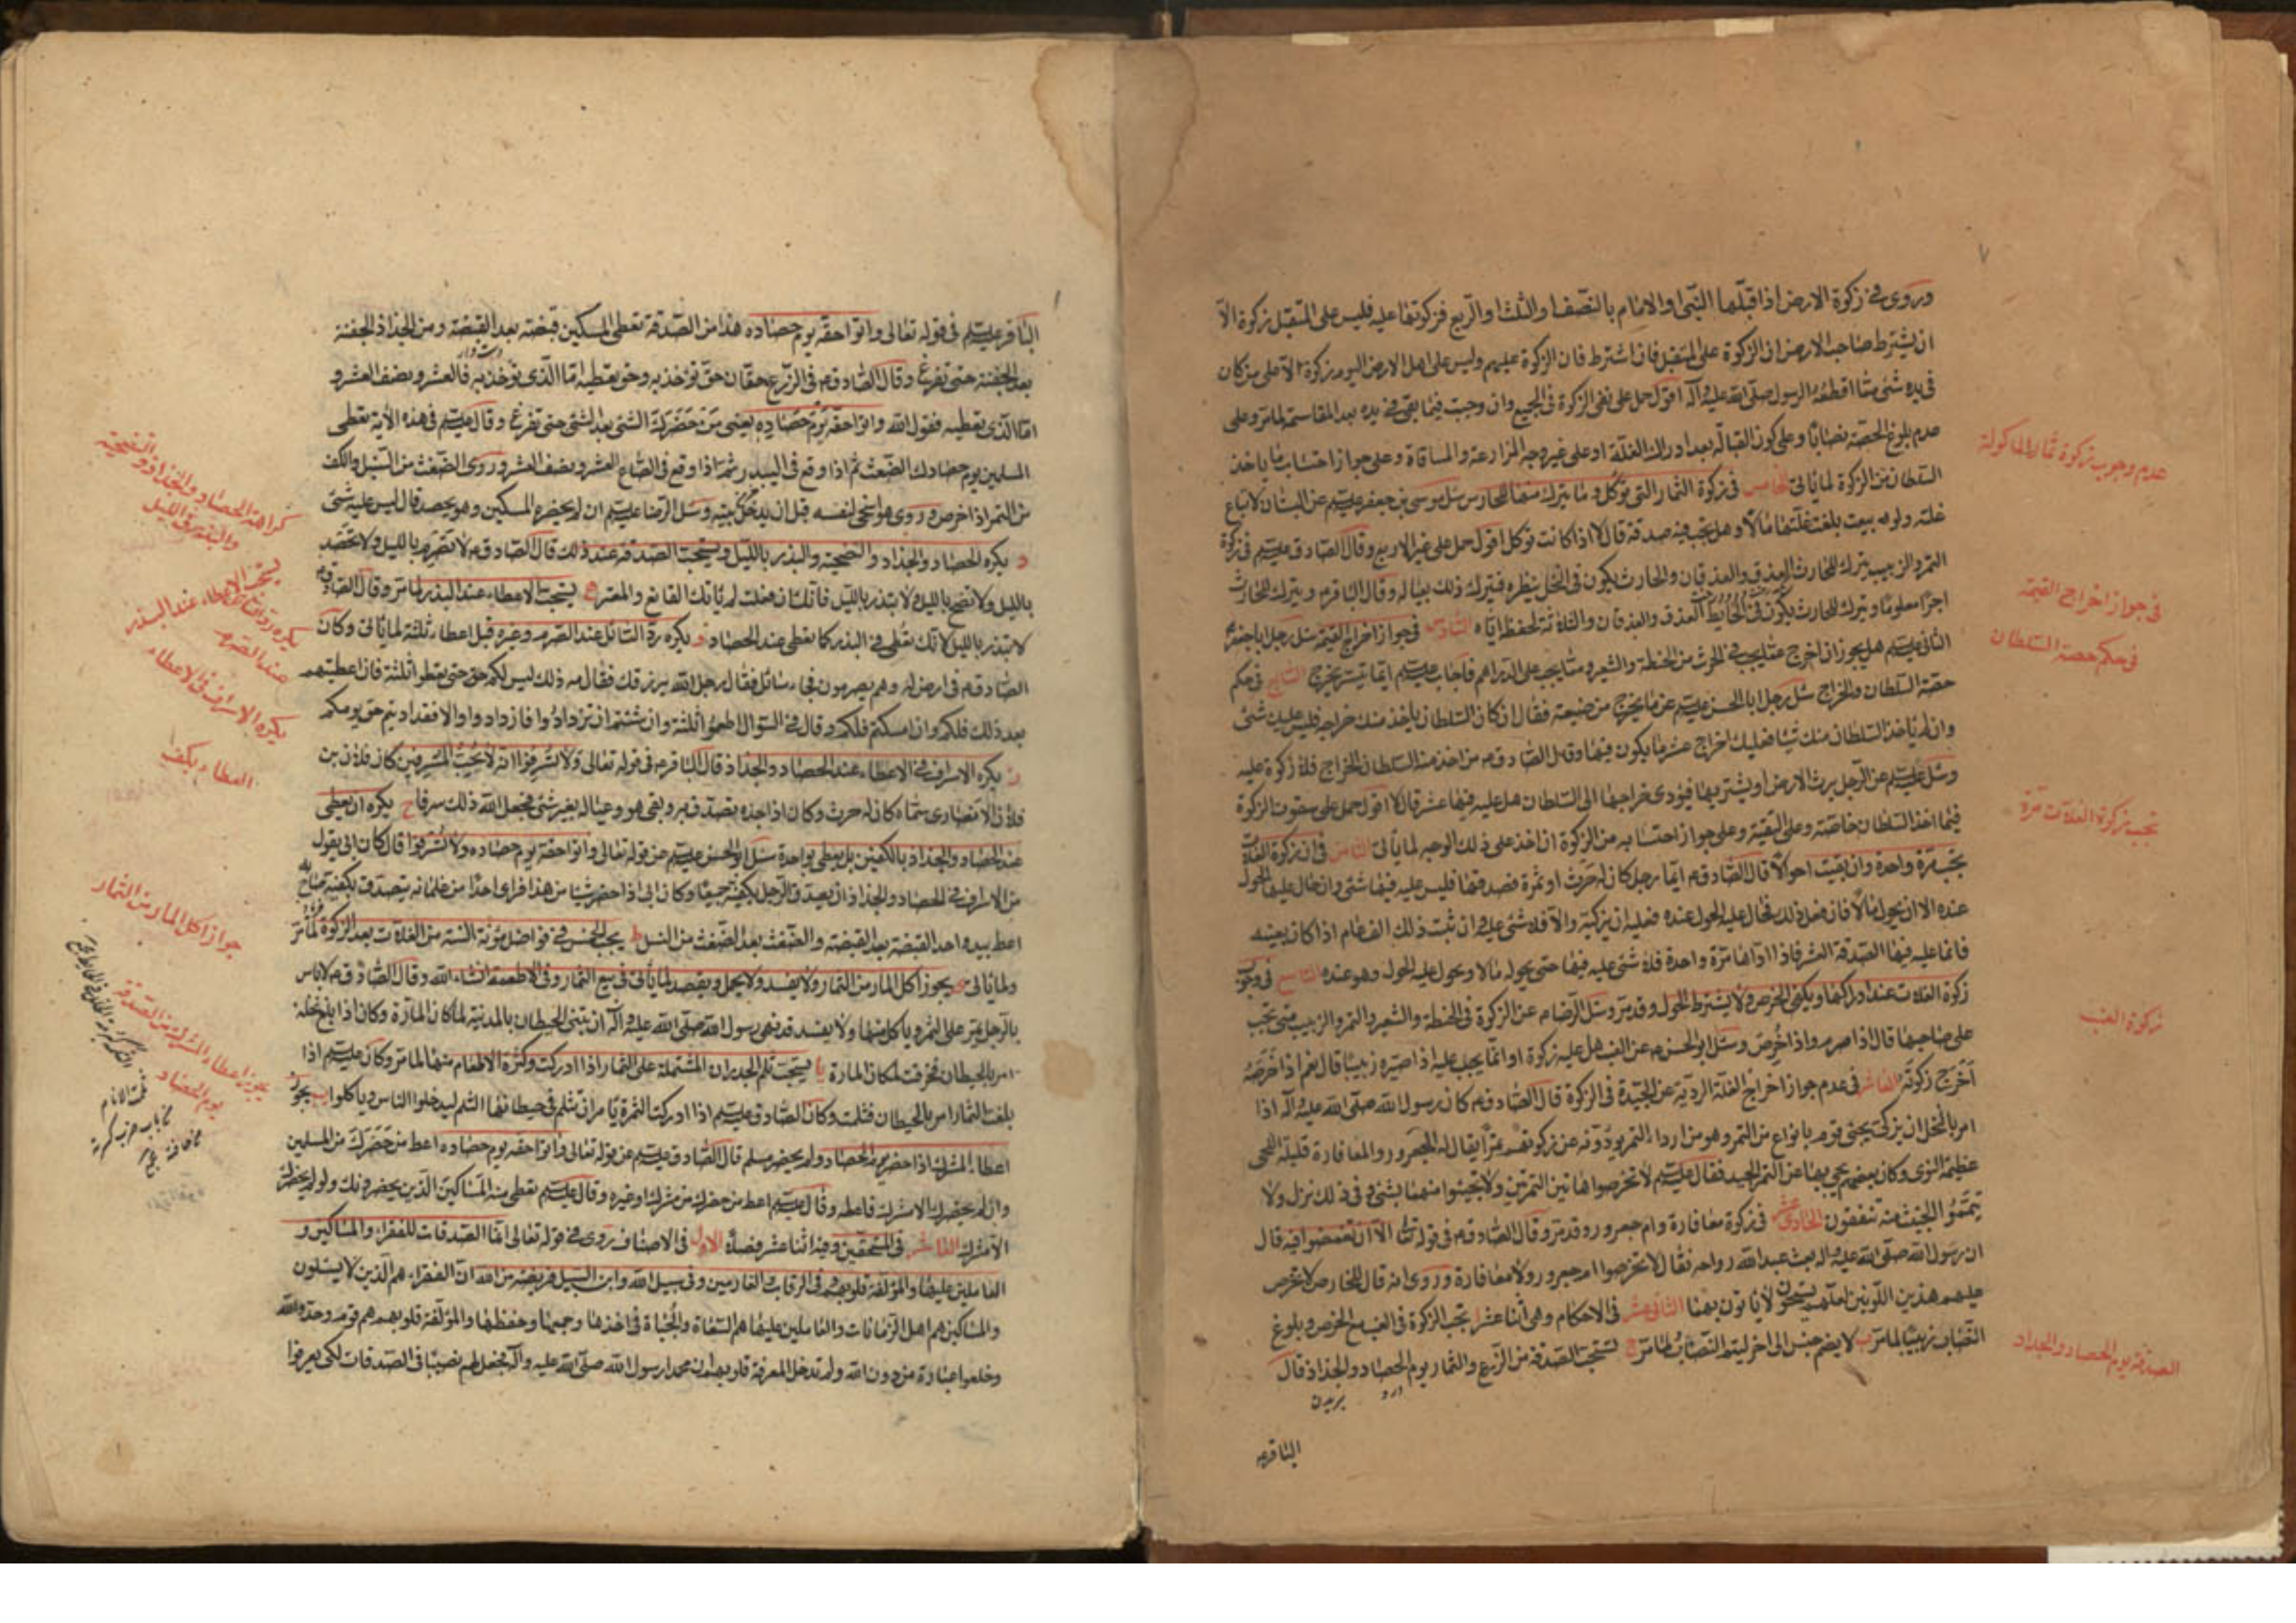 وروى في زكوة الارض اذا قبلها النبى او الامام بالنصف او الثلث او الربع فزكوتها عليه فليس على المتقبل زكوة الا
ان يشترط صاحب الارض ان الزكوة على المتقبل فان اشترط فان الزكوة عليهم وليس على اهل الارض اليوم زكوة الا على من كان
فى يده شئ مما اقطعه الرسول صلى الله عليه وآله اقول حمل على نفى الزكوة فى الجميع وان وجبت فيما بقى فى يده بعد المقاسمة لما مر وعلى
عدم بلوغ الحصة نصابا وعلى كون القبالة بعد ادراك الغلة او على غير وجه المزارعة والمساقاة وعلى جواز احتساب ما ياخذ
السلطان من الزكوة لما ياتى الخامس فى زكوة الثمار التى توكل وما يترك منها للحارس سئل موسى بن جعفر عليه السلم عن البستان لا تباع
غلته ولو بيعت بلغت غلتها مالا وهل يجب فيه صدقة قال لا اذا كانت توكل اقول حمل على غير الاربع وقال الصادق عليه السلم فى زكوة
التمر والزبيب يترك للحارث العذق والعذقان والحارث يكون فى النخل ينظره فيترك ذلك لعياله وقال الباقر م ويترك للحارث
اجرا معلوما ويترك للحارث يكون فى الحائط العذق والعذقان والثلاثة لحفظه اياه السادس فى جواز اخراج القيمة سئل رجل ابا جعفر
الثانى عليه السلم هل يجوز ان اخرج عما يجب فى الحرث من الحنطة والشعير وما يجب على الدراهم فاجاب عليه السلم ايما تيسر يخرج السابع فى حكم
حصة السلطان والخراج سئل رجل ابا الحسن عليه السلم عن ما يخرج من ضيعته فقال ان كان السلطان ياخذ منك خراجه فليس عليك شئ
وان لم ياخذ السلطان منك شيئا فعليك اخراج عشر ما يكون فيها وقال الصادق م من اخذ منه السلطان الخراج فلا زكوة عليه
وسئل عليه السلم عن الرجل يرث الارض او يشتريها فيؤدى خراجها الى السلطان هل عليه فيها عشر قال لا اقول حمل على سقوط الزكوة
فيما اخذ السلطان خاصة وعلى التقية وعلى جواز احتسابه من الزكوة ان اخذ على ذلك الوجه لما ياتى الثامن فى ان زكوة الغلات
تجب مرة واحدة وان بقيت احوالا قال الصادق م ايما رجل كان له حرث او ثمرة فصدقها فليس عليه فيها شئ وان حال عليها الحول
عنده الا ان يحول مالا فان فعل ذلك فحال عليه الحول عنده فعليه ان يزكيه والا فلا شئ عليه وان ثبت ذلك الف عام اذا كان بعينه
فانما عليه فيها الصدقة العشر فاذا اداها مرة واحدة فلا شئ عليه فيها حتى يحوله مالا ويحول عليه الحول وهو عنده التاسع فى وجوب
زكوة الغلات عند ادراكها ويكفى الخرص ولا يشترط الحول وقد مر وسئل الرضا م عن الزكوة فى الحنطة والشعير والتمر والزبيب متى تجب
على صاحبها قال اذا صرم واذا خرص وسئل ابو الحسن م عن العنب هل عليه زكوة او انما يجب عليه اذا صيره زبيبا قال نعم اذا خرصه
اخرج زكوته العاشر فى عدم جواز اخراج الغلة الردية عن الجيدة فى الزكوة قال الصادق م كان رسول الله صلى الله عليه وآله اذا
امر بالنخل ان يزكى يجئ قوم بانواع من التمر وهو من اردا التمر يؤدونه عن زكوتهم تمرا يقال له الجعرور والمعافارة قليلة اللحى
عظيمة النوى وكان بعضهم يجئ بها عن التمر الجيد فقال عليه السلم لا تخرصوا هاتين التمرتين ولا تجيئوا منهما بشئ وفى ذلك نزل ولا
تيمموا الخبيث منه تنفقون الحادى عشر فى زكوة معافارة وام جعرور وقد مر وقال الصادق م فى قوله تعالى الا ان تغمضوا فيه قال
ان رسول الله صلى الله عليه واله بعث عبد الله رواحه فقال لا تخرصوا ام جعرور ولا معافارة وروى انه قال للخارص لا تخرص
عليهم هذين اللونين لعلهم يستحيون لا ياتون بهما الثانى عشر فى الاحكام وهى اثنا عشر ا تجب الزكوة فى العنب مع الخرص وبلوغ
النصاب زبيبا لما مر ب لا يضم جنس الى اخر ليتم النصاب لما مر ج تستحب الصدقة من الزرع والثمار يوم الحصاد والجذاذ قال
الباقر م
عدم وجوب زكوة ثمار الماكولة
فى جواز اخراج القيمة
فى حكم حصة السلطان
تجب زكوة الغلات مرة
زكوة العنب
الصدقة يوم الحصاد والجداد
الباقر عليه السلم فى قوله تعالى واتوا حقه يوم حصاده هذا من الصدقة تعطى المسكين قبضة بعد القبضة ومن الجذاذ الحفنة
بعد الحفنة حتى تفرغ وقال الصادق م فى الزرع حقان حق تؤخذ به وحق تعطيه اما الذى تؤخذ به فالعشر ونصف العشر و
اما الذى تعطيه فقول الله واتوا حقه يوم حصاده يعنى من حضرك الشئ بعد الشئ حتى تفرغ وقال عليه السلم فى هذه الآية تعطى
المسلمين يوم حصادك الضغث ثم اذا وقع فى البيدر ثم اذا وقع فى الصاع العشر ونصف العشر وروى الضغث من السنبل والكف
من التمر اذا خرص وروى هو اسخى لنفسه قبل ان يدخل بيته وسئل الرضا عليه السلم ان لم يحضر المسكين وهو يحصد قال ليس عليه شئ
د يكره الحصاد والجذاذ والتضحية والبذر بالليل ويستحب الصدقة عند ذلك قال الصادق م لا تصرم بالليل ولا تحصد
بالليل ولا تضح بالليل ولا تبذر بالليل فانك ان فعلت لم ياتك القانع والمعتر ه يستحب الاعطاء عند البذر لما مر وقال الصادق م
لا تبذر بالليل لانك تعطى فى البذر كما تعطى عند الحصاد و يكره رد السائل عند الصرم وغيره قبل اعطاء ثلثة لما ياتى وكان
الصادق م فى ارض له وهم يصرمون فجاء سائل فقال رجل الله يرزقك فقال مه ذلك ليس لكم حق حتى تعطوا ثلثة فان اعطيتهم
بعد ذلك فلكم وان امسكتم فلكم وقال فى السؤال اطعموا ثلثة وان شئتم ان تزدادوا فازدادوا والا فقد اديتم حق يومكم
ز يكره الاسراف فى الاعطاء عند الحصاد والجذاذ قال الباقر م فى قوله تعالى ولا تسرفوا انه لا يحب المسرفين كان فلان بن
فلان الانصارى سماه كان له حرث وكان اذا اجذه يتصدق به ويبقى هو وعياله بغير شئ فجعل الله ذلك سرفا ح يكره ان يعطى
عند الحصاد والجذاذ بالكفين بل يعطى بواحدة سئل ابو الحسن عليه السلم عن قوله تعالى واتوا حقه يوم حصاده ولا تسرفوا قال كان ابى يقول
من الاسراف فى الحصاد والجذاذ ان يصدق الرجل بكفيه جميعا وكان ابى اذا حضر شيئا من هذا فراى احدا من غلمانه يتصدق بكفيه صاح به
اعط بيد واحد القبضة بعد القبضة والضغث بعد الضغث من السنبل ط يجب الخمس فى فواضل مؤنة السنة من الغلات بعد الزكوة لما مر
ولما ياتى ى يجوز اكل المار من الثمار ولا يفسد ولا يحمل ويقصد لما ياتى فى بيع الثمار وفى الاطعمة انشاء الله وقال الصادق م لا باس
بالرجل يمر على الثمرة وياكل منها ولا يفسد قد نهى رسول الله صلى الله عليه وآله ان تبنى الحيطان بالمدينة لمكان المارة وكان اذا بلغ نخله
امر بالحيطان فخرقت لمكان المارة يا يستحب ثلم الجدران المشتملة على الثمار اذا ادركت وكثرة الاطعام منها لما مر وكان عليه السلم اذا
بلغت الثمار امر بالحيطان فثلمت وكان الصادق عليه السلم اذا ادركت الثمرة يامر ان تثلم فى حيطانها الثلم ليدخلوا الناس وياكلوا يب يجوز
اعطاء المشرك اذا حضر يوم الحصاد ولم يحضر مسلم قال الصادق عليه السلم عن قوله تعالى واتوا حقه يوم حصاده اعط من حضرك من المسلمين
وان لم يحضرك الا مشرك فاعطه وقال عليه السلم اعط من حضرك من مشرك او غيره وقال عليه السلم تعطى منه المساكين الذين يحضرونك ولو لم يحضرك
الا مشرك العاشر فى المستحقين وفيه اثنا عشر فصلا الاول فى الاصناف روى فى قوله تعالى انما الصدقات للفقراء والمساكين و
العاملين عليها والمؤلفة قلوبهم وفى الرقاب والغارمين وفى سبيل الله وابن السبيل فريضة من الله ان الفقراء هم الذين لا يسئلون
والمساكين هم اهل الزمانات والعاملين عليها هم السعاة والجباة فى اخذها وجمعها وحفظها والمؤلفة قلوبهم هم قوم وحدوا الله
وخلعوا عبادة من دون الله ولم تدخل المعرفة قلوبهم ان محمدا رسول الله صلى الله عليه وآله فجعل لهم نصيبا فى الصدقات لكى يعرفوا
كراهة الحصاد والجذاذ والتضحية
والبذر فى الليل
يستحب الاعطاء عند البذر
يكره رد السائل
عند الصرم
يكره الاسراف فى الاعطاء
العطاء بكف
جواز اكل المار من الثمار
يجوز اعطاء المشرك من الصدقة
يوم الحصاد